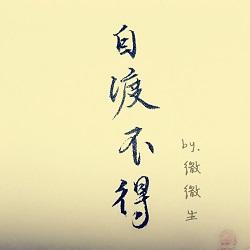 自渡不得
by.微微生